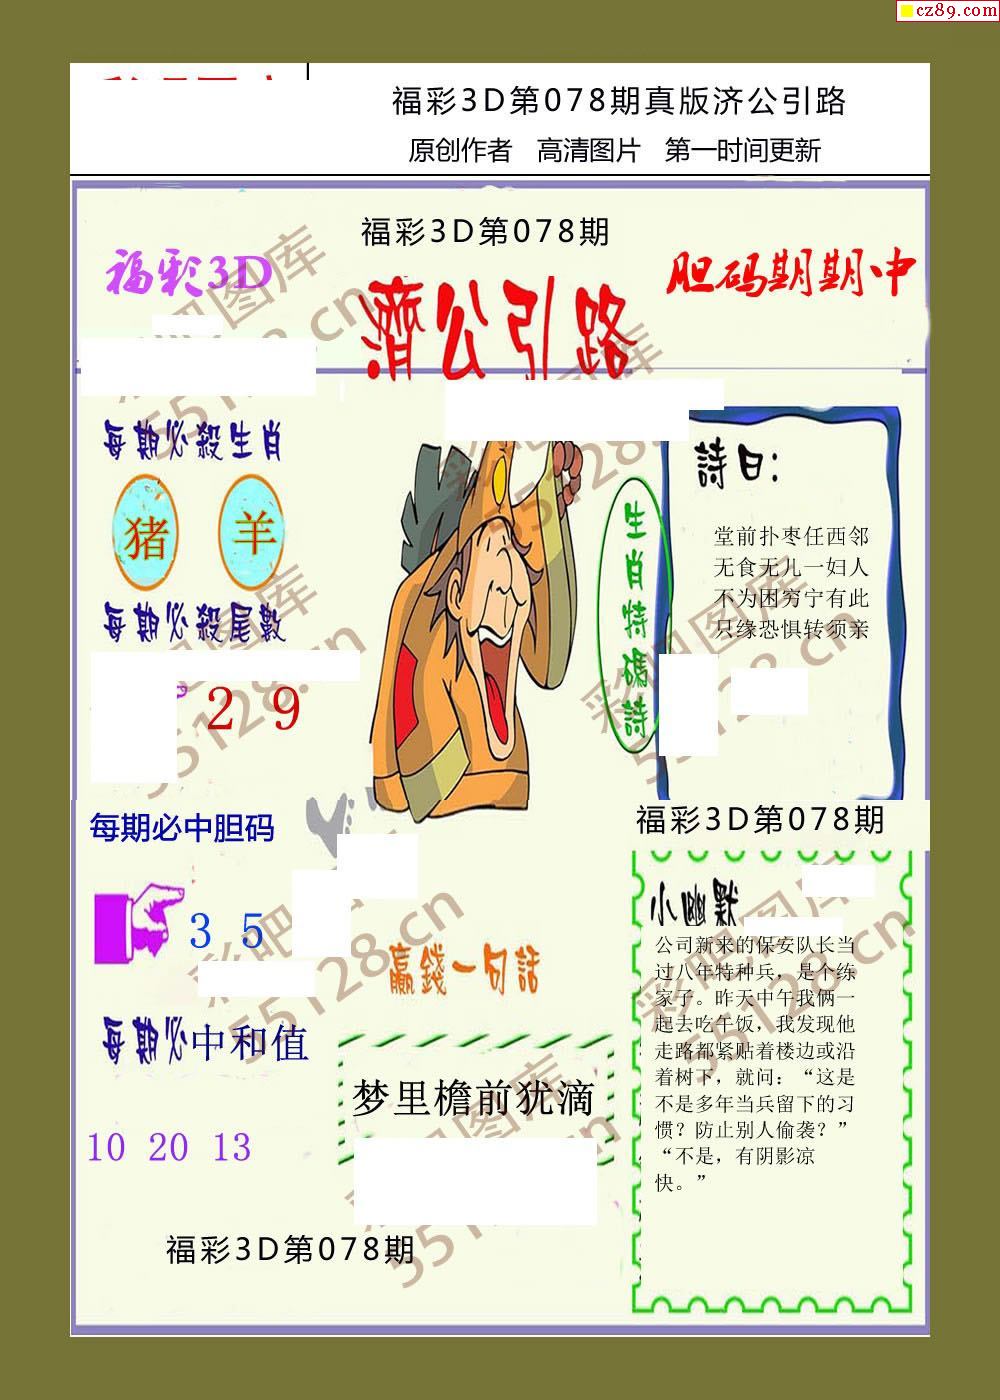 cz89.com
福彩3D第078期真版济公引路
原创作者 高清图片 第一时间更新
福彩3D第078期
福彩3D
濟公引路
胆码期期中
每期必殺生肖
猪 羊
每期必殺尾數
2 9
生肖特碼詩
詩曰:
堂前扑枣任西邻
无食无儿一妇人
不为困穷宁有此
只缘恐惧转须亲
每期必中胆码
3 5
每期必中和值
10 20 13
贏錢一句話
梦里檐前犹滴
福彩3D第078期
福彩3D第078期
小幽默
公司新来的保安队长当
过八年特种兵，是个练
家子。昨天中午我俩一
起去吃午饭，我发现他
走路都紧贴着楼边或沿
着树下，就问：“这是
不是多年当兵留下的习
惯？防止别人偷袭？”
“不是，有阴影凉
快。”
彩吧图库
55128.cn